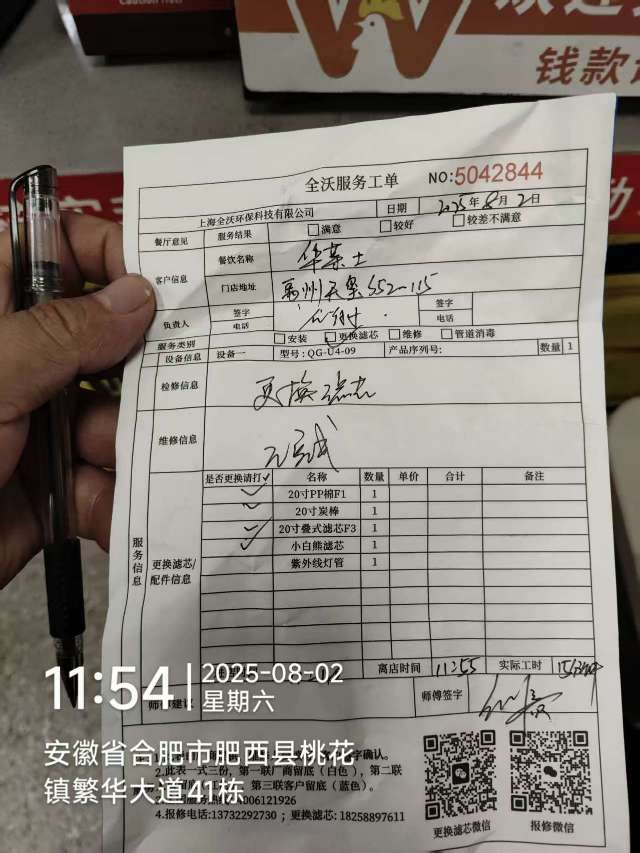 Caution Hot!
W
钱款
全沃服务工单 NO:5042844
上海全沃环保科技有限公司 日期 2025年8月2日
餐厅意见 服务结果 满意 较好 较差不满意
客户信息 餐饮名称 华莱士
门店地址 552-115
负责人 签字 签字
电话 电话
服务类别 安装 更换滤芯 维修 管道消毒
设备信息 设备一 型号:QG-U4-09 产品序列号: 数量 1
检修信息 更换滤芯
维修信息 已完成
服务信息
更换滤芯/配件信息
是否更换请打✓ 名称 数量 单价 合计 备注
✓ 20寸PP棉F1 1
✓ 20寸炭棒 1
✓ 20寸叠式滤芯F3 1
✓ 小白熊滤芯 1
紫外线灯管 1
离店时间 11:55 实际工时 15分钟
师傅建议 师傅签字
11:54 2025-08-02
星期六
安徽省合肥市肥西县桃花
镇繁华大道41栋
字确认。
2.此表一式三份,第一联厂商留底(白色),第二联
留底,第三联客户留底(蓝色)。
006121926
4.报修电话:13732292730;更换滤芯:18258897611
更换滤芯微信 报修微信